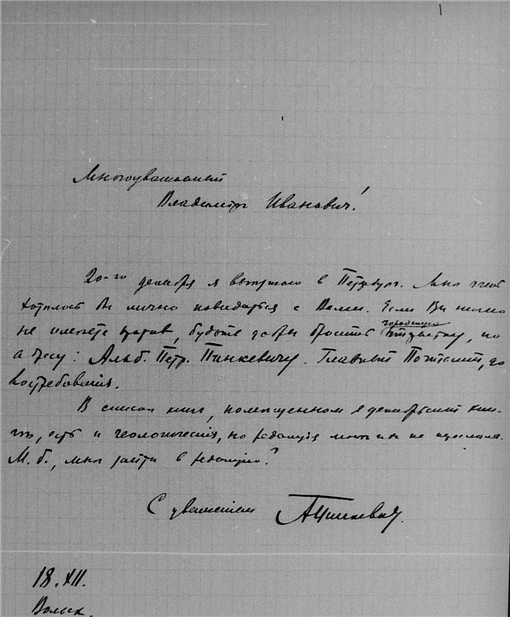 1
Многоуважаемый
Владимир Иванович!
20-го декабря я выезжаю в Петербург. Мне очень
хотелось бы лично повидаться с Вами. Если Вы ничего
не имеете против, будьте добры бросить городскую по
адресу: Альб. Петр. Пинкевичу. Главный Почтамт, до
востребования.
В списке книг, помещенном в декабрьской кни-
, есть и геологические, но редакция мне их не
М. б., мне зайти в редакцию?
С уважением АПинкевич.
18.XII.
Вольск.